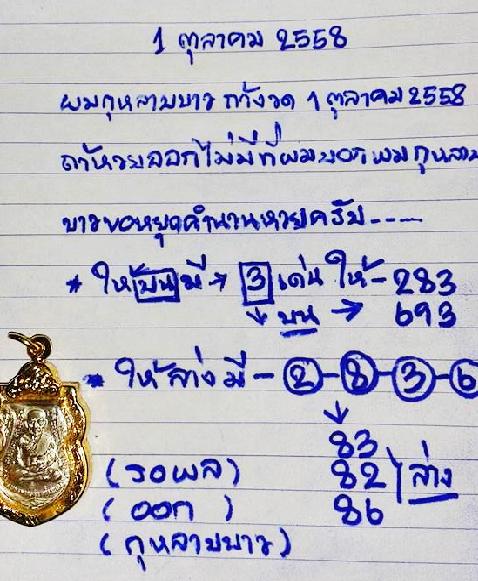 1 ตุลาคม 2558
ผมกุหลาบขาว ถ้างวด 1 ตุลาคม 2558
ถ้าหวยออกไม่มีที่ผมบอก ผมกุหลาบ
ขาวขอหยุดคำนวนหวยครับ----
* ให้บนมี → 3 เด่น ให้ - 283
↓ บน → 693
* ให้ล่างมี - 2 - 8 - 3 - 6
↓
83
(รอผล) 82 ล่าง
(ออก) 86
(กุหลาบขาว)